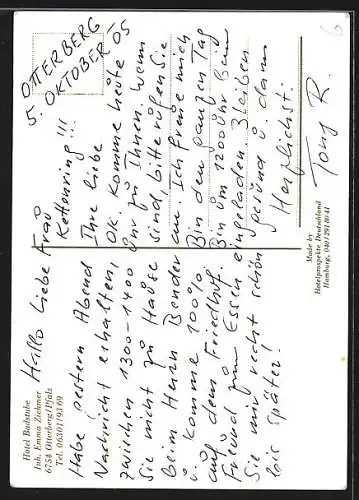 OTTERBERG
5. OKTOBER '05
Hallo liebe Frau
Kettenring!!!
Habe gestern Abend Ihre liebe
Nachricht erhalten, OK. Komme heute
zwischen 1300-1400 Uhr zu Ihnen. Wenn
Sie nicht zu Hause sind, bitte rufen Sie
beim Herrn Bender an. Ich freue mich
u. komme 100%. Bin den ganzen Tag
auf dem Friedhof. Bin um 1200 Uhr beim
Freund zum Essen eingeladen. Bleiben
Sie mir recht schön gesund u. dann
bis später! Herzlichst.
Tony R.
Hotel Badstube
Inh. Emma Ziehmer
6754 Otterberg/Pfalz
Tel. 06301/9369
Made by
Hotelprospekte Deutschland
Hamburg, 040/291 80 41